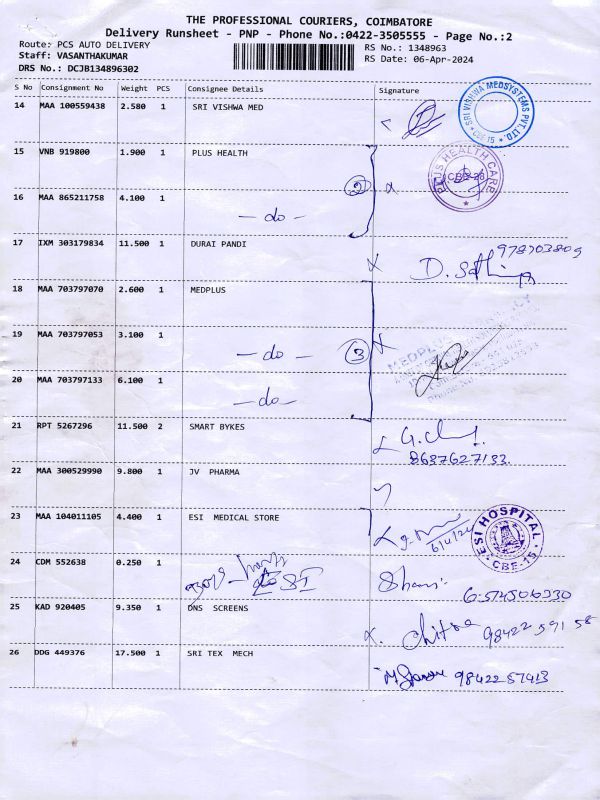 THE PROFESSIONAL COURIERS, COIMBATORE
Delivery Runsheet - PNP - Phone No.:0422-3505555 - Page No.:2
Route: PCS AUTO DELIVERY
RS No.: 1348963
Staff: VASANTHAKUMAR
RS Date: 06-Apr-2024
DRS No.: DCJB134896302
S No Consignment No Weight PCS Consignee Details Signature
14 MAA 100559438 2.580 1 SRI VISHWA MED
SRI VISHWA MEDSYSTEMS PVT. LTD. * CBE-15 *
15 VNB 919800 1.900 1 PLUS HEALTH
PLUS HEALTH CARE
2
16 MAA 865211758 4.100 1
-do-
17 IXM 303179834 11.500 1 DURAI PANDI
18 MAA 703797070 2.600 1 MEDPLUS
19 MAA 703797053 3.100 1
-do- 3
20 MAA 703797133 6.100 1
-do-
21 RPT 5267296 11.500 2 SMART BYKES
8637627133
22 MAA 300529990 9.800 1 JV PHARMA
23 MAA 104011105 4.400 1 ESI MEDICAL STORE
6/4/24
ESI HOSPITAL CBE-15
24 CDM 552638 0.250 1
25 KAD 920405 9.350 1 DNS SCREENS
Chitra 98422 59158
26 DDG 449376 17.500 1 SRI TEX MECH
98422 57413